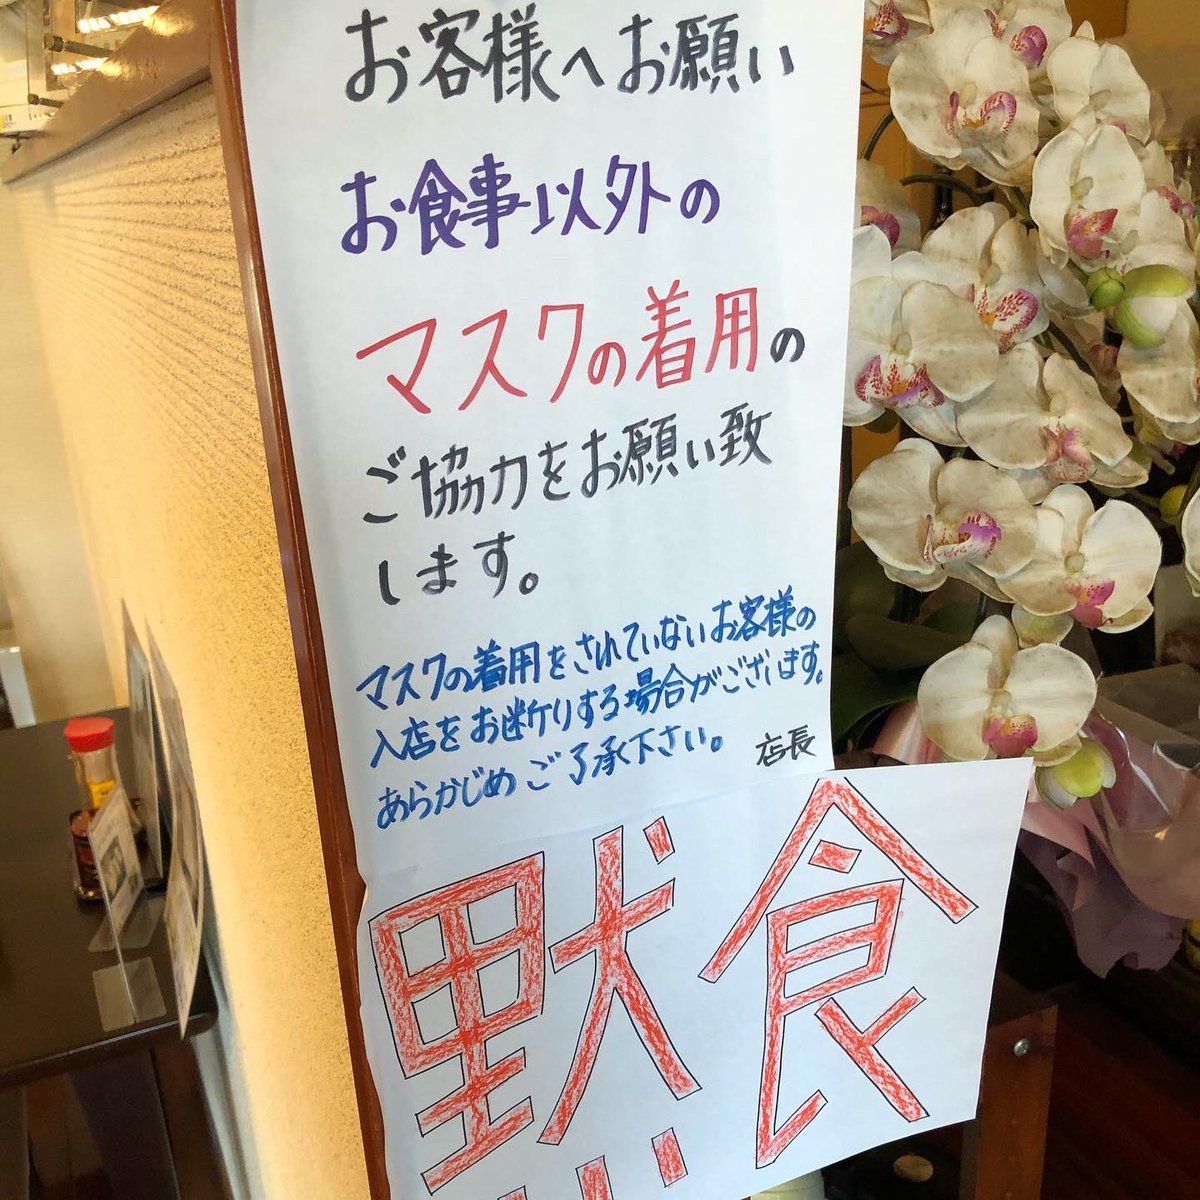 お客様へお願い
お食事以外の
マスクの着用の
ご協力をお願い致
します。
マスクの着用をされていないお客様の
入店をお断りする場合がございます。
あらかじめご了承下さい。
店長
黙食